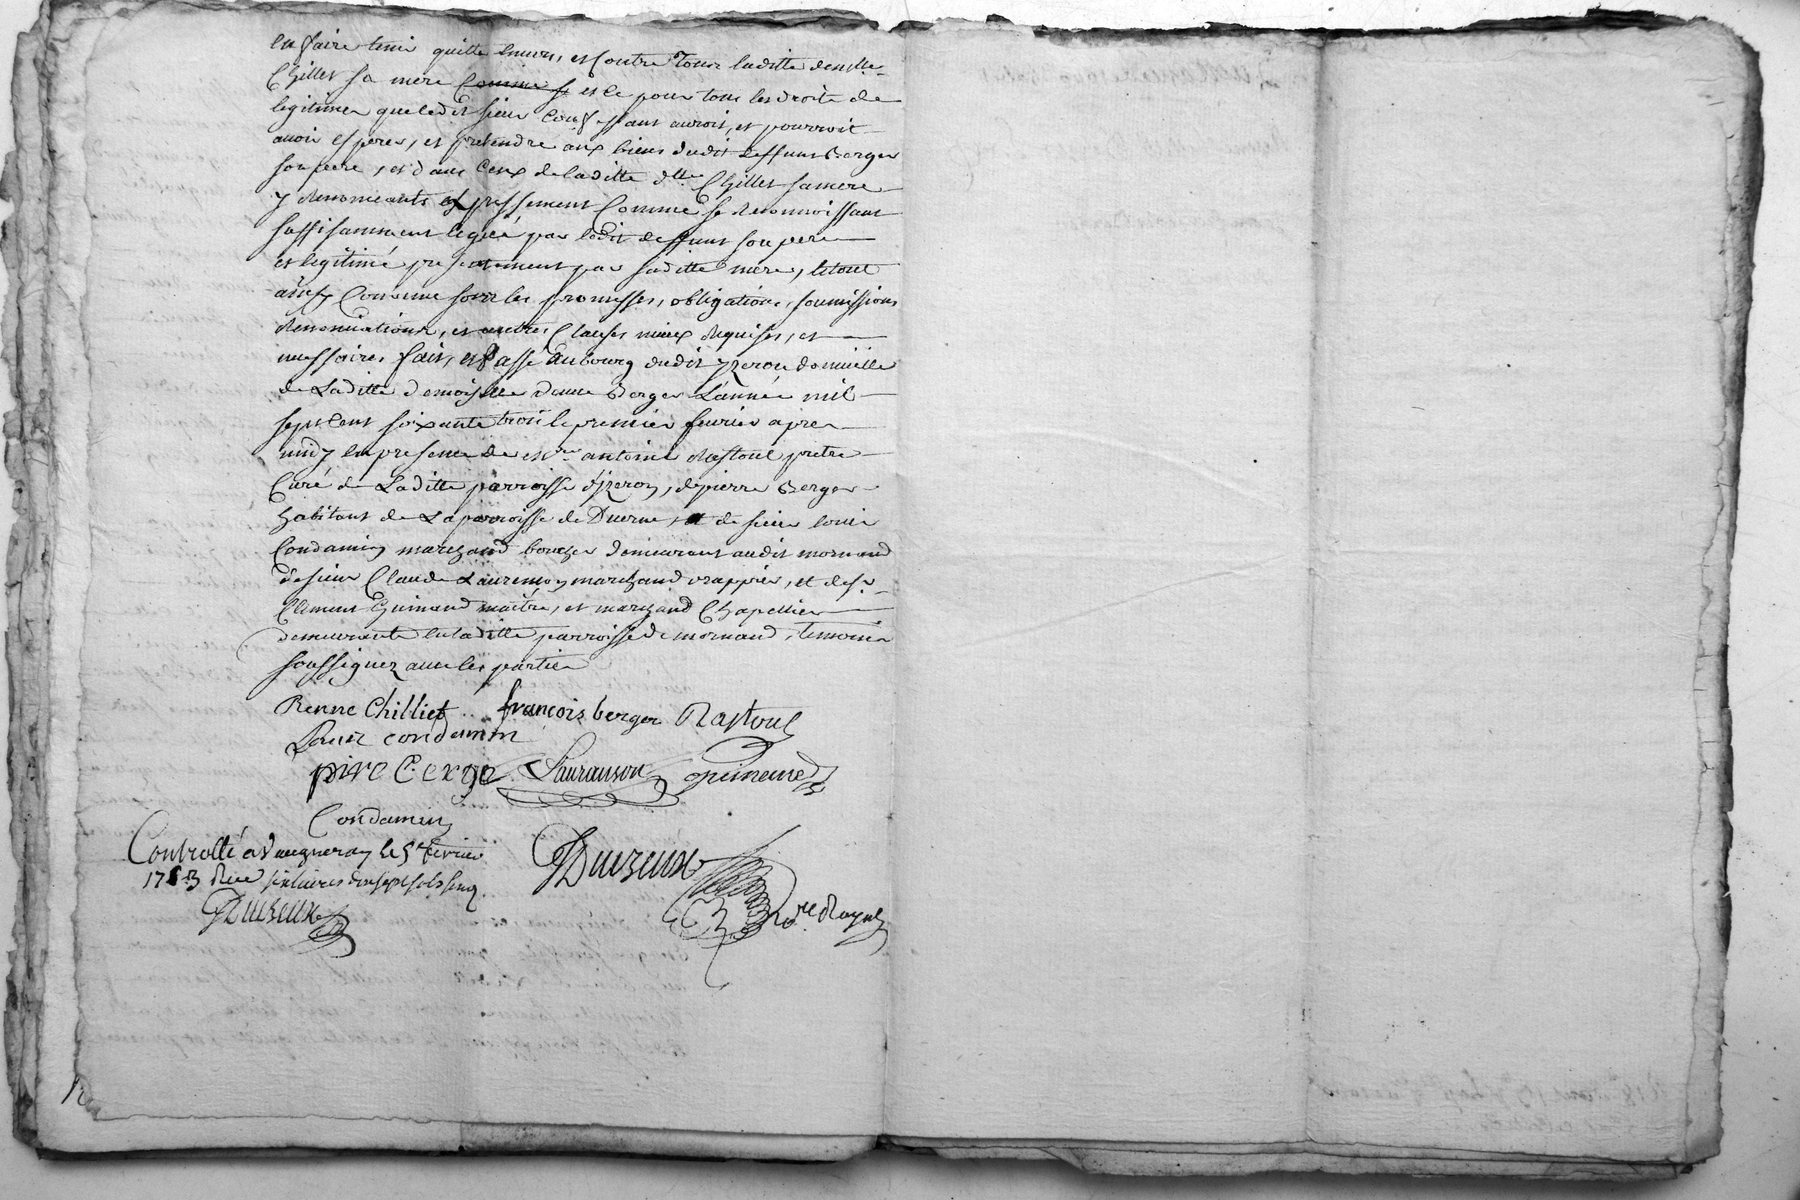 en faire tenir quitte envers, et contre Tous laditte demlle
Chillet sa mere et ce pour tous les droits de
legitimes que ledit sieur confessant auroit, et pourroit
avoir esperer, et pretendre aux biens dudit deffunt Berger
son pere, et dans Ceux de laditte dlle Chillet sa mere
y Renonceants expressement Comme se Reconnoissant
suffisamment legué par ledit deffunt son pere
et legitimé presentement par saditte mere, le tout
ainsy Convenu sous les promesses, obligations, soumissions
Renonciations, et autres Clauses mieux Requises, et
necessaires fait, et Passé au bourg dudit yzeron domicille
de Laditte demoiselle Berger L'année mil
sept cent soixante trois le premier fevrier apres
midy en presence de antoine Rastoul pretre
Curé de Laditte parroisse d'yzeron, de pierre Berger
habitant de La parroisse de Duerne, et de sieur louis
Condamin marchand boucher demeurant audit mornand
de sieur Claude Laurenson marchand drappier, et de sr
Clement Guimand maitre, et marchand Chapellier
demeurants en laditte parroisse de mornand, temoins
soussignez avec les parties
Renne Chilliet francois berger Rastoul
Louis condamin
pire Berge Lauranson
Condamin
Controllé a Vaugneray le 5e fevrier
1763 Reçu
Duizeux
Duizeux
Nore Royal